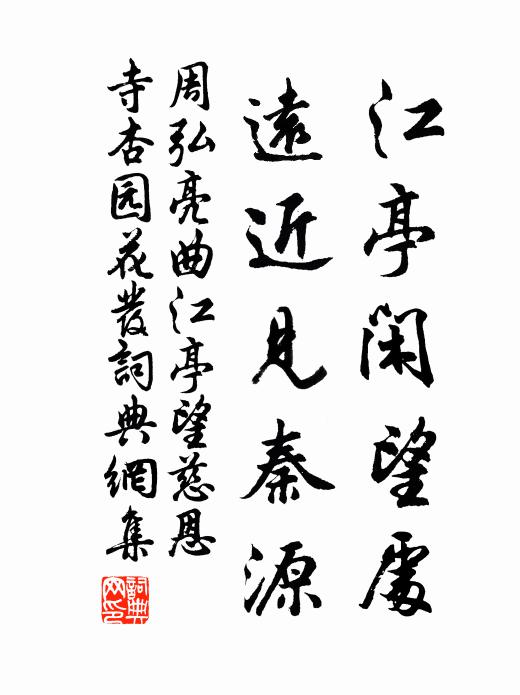 江亭閑望處
遠近見秦源
周弘亮曲江亭望慈恩
寺杏园花發詞典網集
詞典
网印